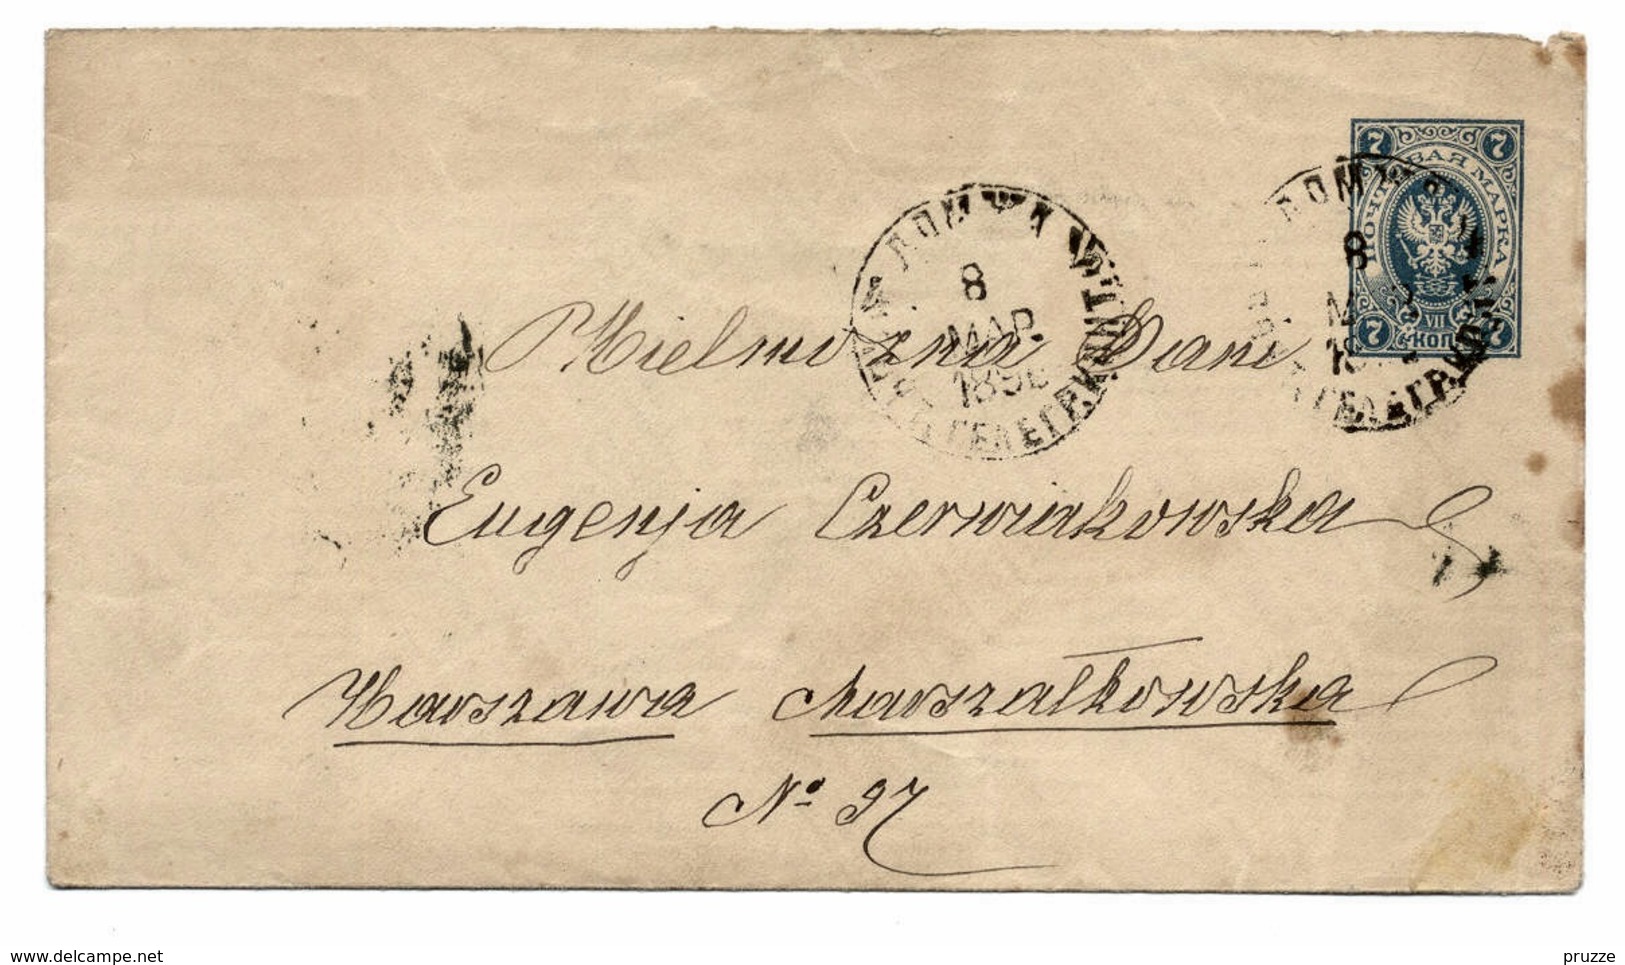 7 7
ПОЧТОВАЯ МАРКА
ЛОМЖА
8
МАР.
ЛОМЖА
8
7 VII 7
КОП
ТЕЛЕГР.
ТЕЛЕГР.
Wielmożna Pani
Eugenja Czerwiakowska
Warszawa Marszałkowska
No 97
www.delcampe.net
pruzze